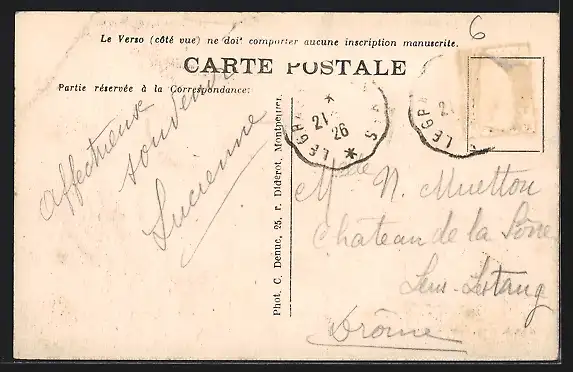 6
Le Verso (côté vue) ne doit comporter aucune inscription manuscrite.
CARTE POSTALE
Partie réservée à la Correspondance:
Affectueux
souvenir
Lucienne
Phot. C. Denuc, 25, r. Diderot, Montpellier
LE GRA
21
26
LE GRA
21
Mme N. Muetton
Château de la Sône
Lens-Lestang
Drôme